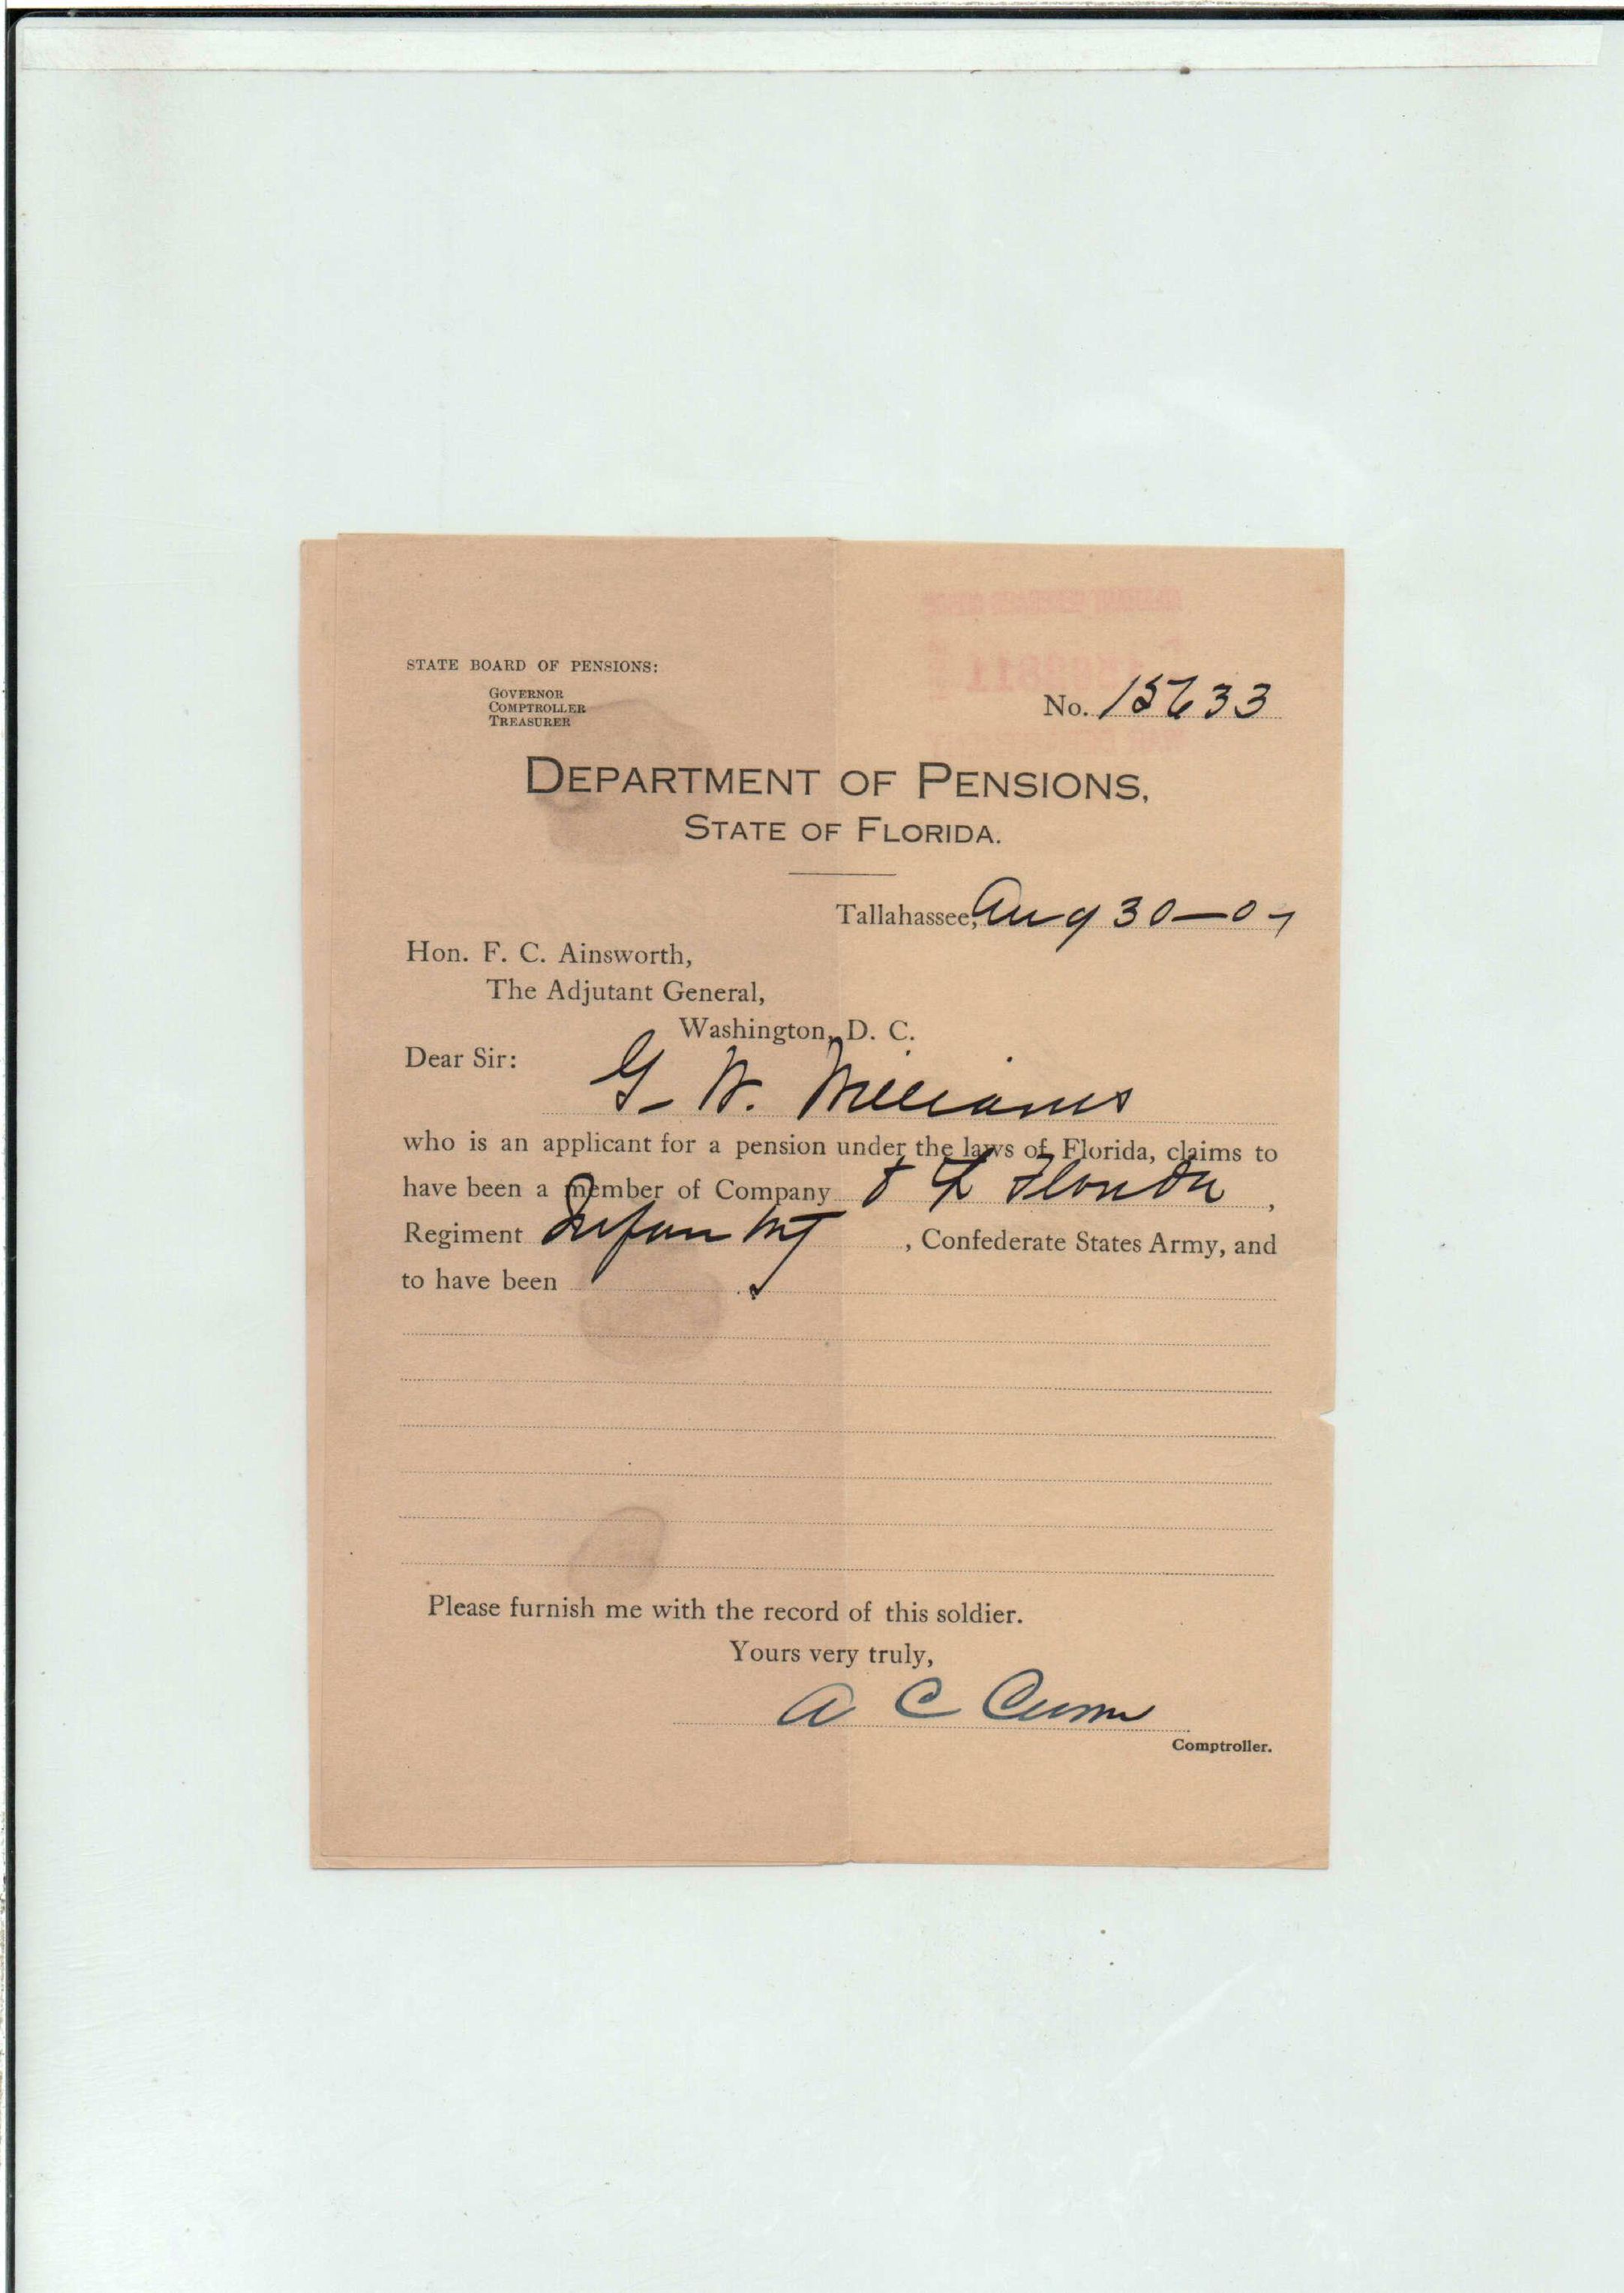 STATE BOARD OF PENSIONS:
GOVERNOR
COMPTROLLER
TREASURER
No. 15633
DEPARTMENT OF PENSIONS,
STATE OF FLORIDA.
Tallahassee, Aug 30-07
Hon. F. C. Ainsworth,
The Adjutant General,
Washington, D. C.
Dear Sir:
G. W. Williams
who is an applicant for a pension under the laws of Florida, claims to
have been a member of Company Florida,
Regiment Infantry, Confederate States Army, and
to have been
Please furnish me with the record of this soldier.
Yours very truly,
A C Croom
Comptroller.